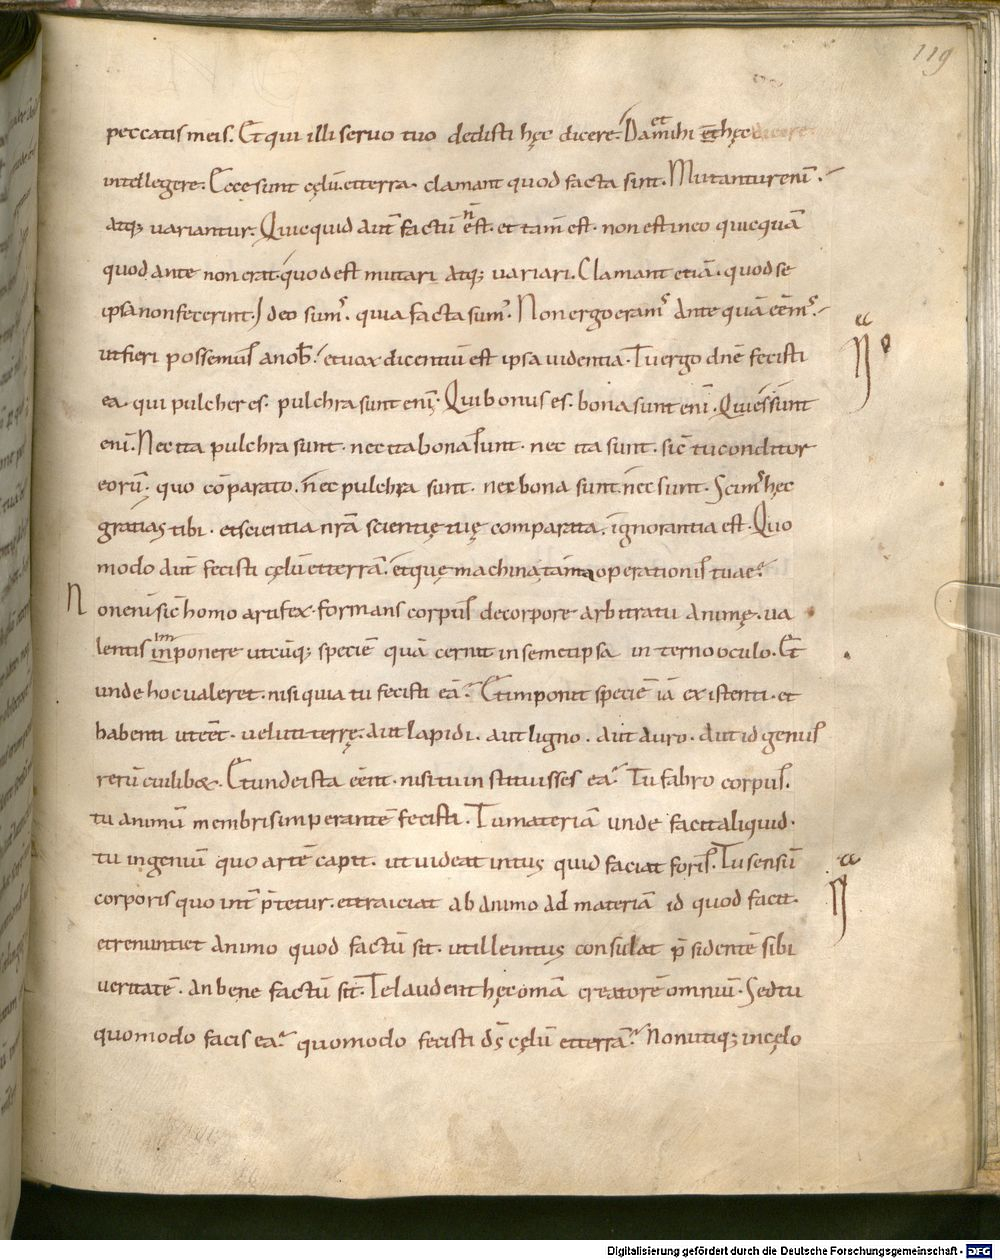 119
peccatis meis. Et qui illi seruo tuo dedisti hęc dicere. Da et mihi & hęc dicere
intellegere. Ecce sunt cęlū. et terra. clamant quod facta sint. Mutantur enī.
atq; uariantur. Quicquid aut̄ factū n̄ est. et tam̄ est. non est in eo quicquā
quod ante non erat. quod est mutari atq; uariari. Clamant etiā. quod se
ipsa non fecerint. Ideo sumꝰ. quia facta sumꝰ. Non ergo eramꝰ ante quā eēmꝰ.
ut fieri possemus a nob̄. et uox dicentiū est ipsa uidentia. Tu ergo dn̄e fecisti
ea. qui pulcher es. pulchra sunt enī. Qui bonus es. bona sunt enī. Qui es. sunt
enī. Nec ita pulchra sunt. nec ita bona sunt. nec ita sunt. sic̄ tu conditor
eorū. quo cōparato. nec pulchra sunt. nec bona sunt. nec sunt. Scimꝰ hęc
gratias tibi. et scientia nr̄a scientię tuę comparata. ignorantia est. Quo
modo aut̄ fecisti cęlū et terrā. et quę machina tam operationis tuae.
N onenī sic̄ homo artifex. formans corpus de corpore arbitratu animę. ua
lentis im inponere utcūq; speciē quā cernit in semetipsa interno oculo. Et
unde hoc ualeret. nisi quia tu fecisti eā. Et imponit speciē iā existenti. et
habenti ut eēt. ueluti terrę. aut lapidi. aut ligno. aut auro. aut id genus
rerū cuilibet. Et unde ista eēnt. nisi tu instituisses ea. Tu fabro corpus.
tu animū membris imperantē fecisti. Tu materiā unde facit aliquid.
tu ingeniū quo artē capit. ut uideat intus quid faciat foris. Tu sensū
corporis quo int̄ p̄tetur. et traiciat ab animo ad materiā id quod facit.
et renuntiet animo quod factū sit. ut ille intus consulat p̄sidentē sibi
ueritatē. an bene factū sit. Te laudent hęc om̄a creatorē omniū. Sed tu
quomodo facis ea. quomodo fecisti ds̄ cęlū et terrā. Non utiq; in cęlo
Digitalisierung gefördert durch die Deutsche Forschungsgemeinschaft - DFG